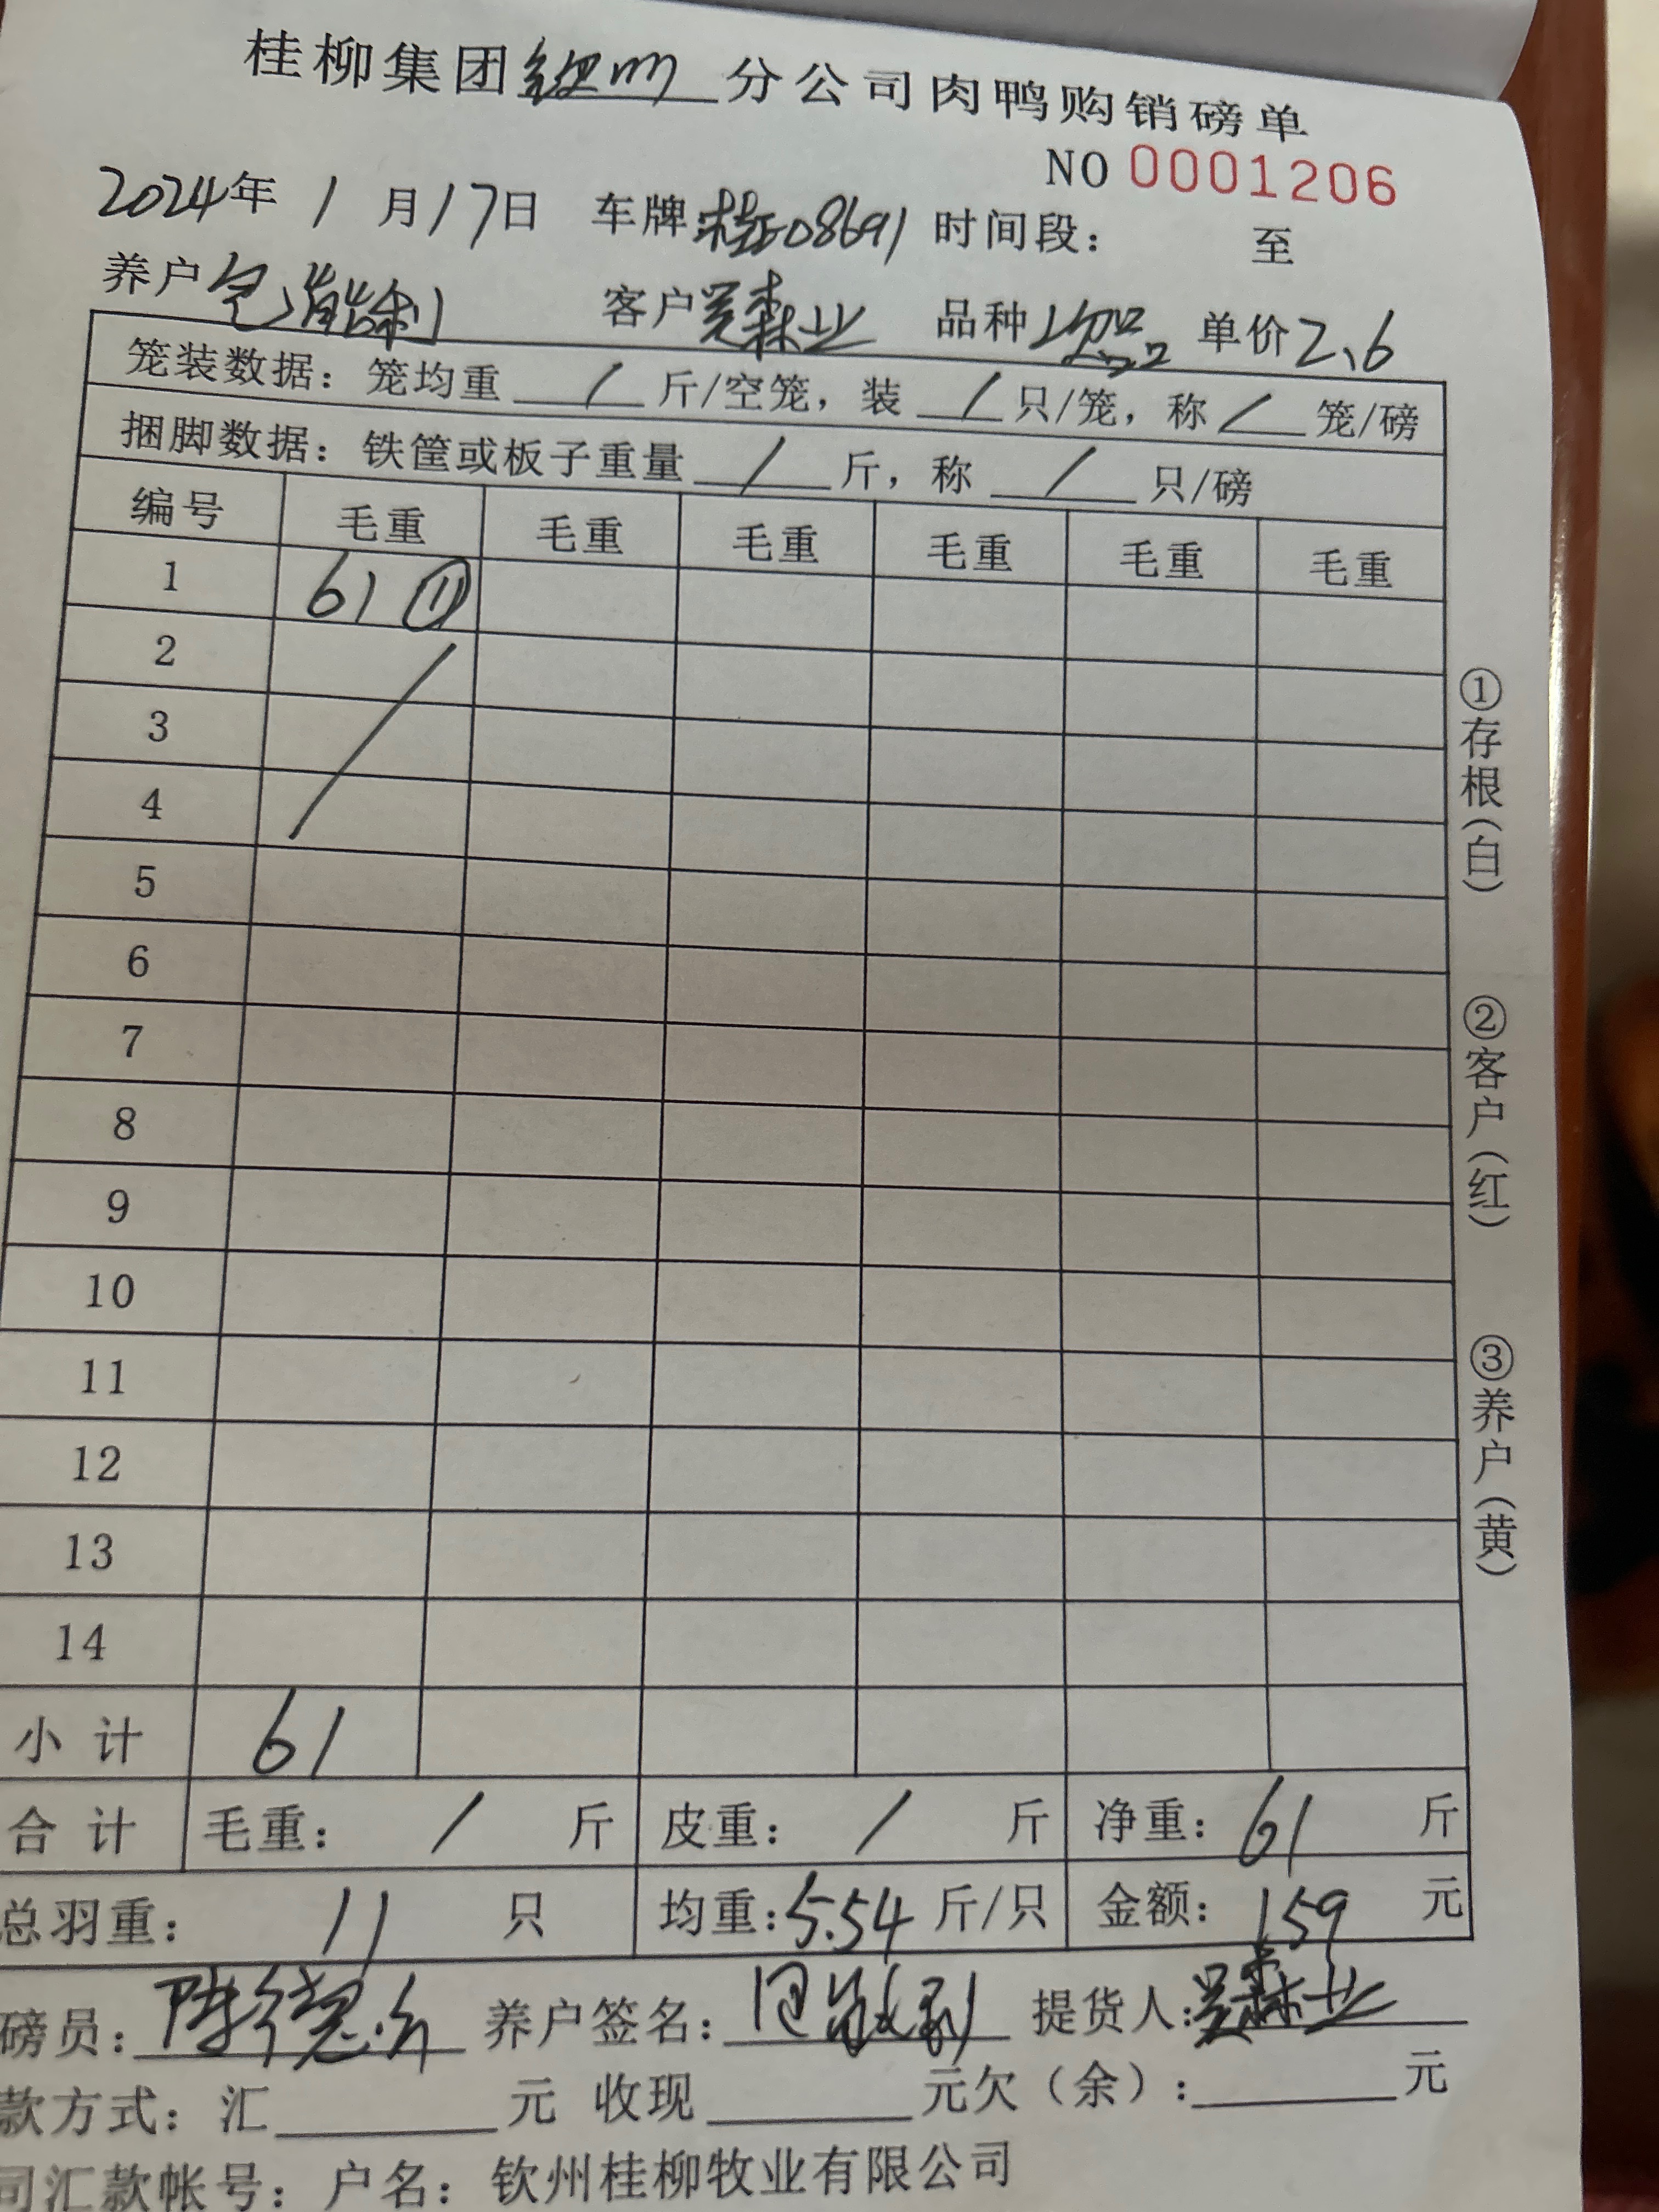 桂柳集团钦州分公司肉鸭购销磅单
NO 0001206
2024年 1 月17日 车牌:桂D08691 时间段: 至
养户 客户吴森业 品种 单价2.6
笼装数据: 笼均重 / 斤/空笼, 装 / 只/笼, 称 / 笼/磅
捆脚数据: 铁筐或板子重量 / 斤, 称 / 只/磅
编号 毛重 毛重 毛重 毛重 毛重 毛重
1 61 ⑪
2
3
4
5
6
7
8
9
10
11
12
13
14
小 计 61
合 计 毛重: / 斤 皮重: / 斤 净重: 61 斤
总羽重: 11 只 均重:5.54 斤/只 金额: 159 元
磅员: 养户签名: 提货人:吴森业
款方式: 汇 元 收现 元欠(余): 元
司汇款帐号: 户名: 钦州桂柳牧业有限公司
①存根(白)
②客户(红)
③养户(黄)